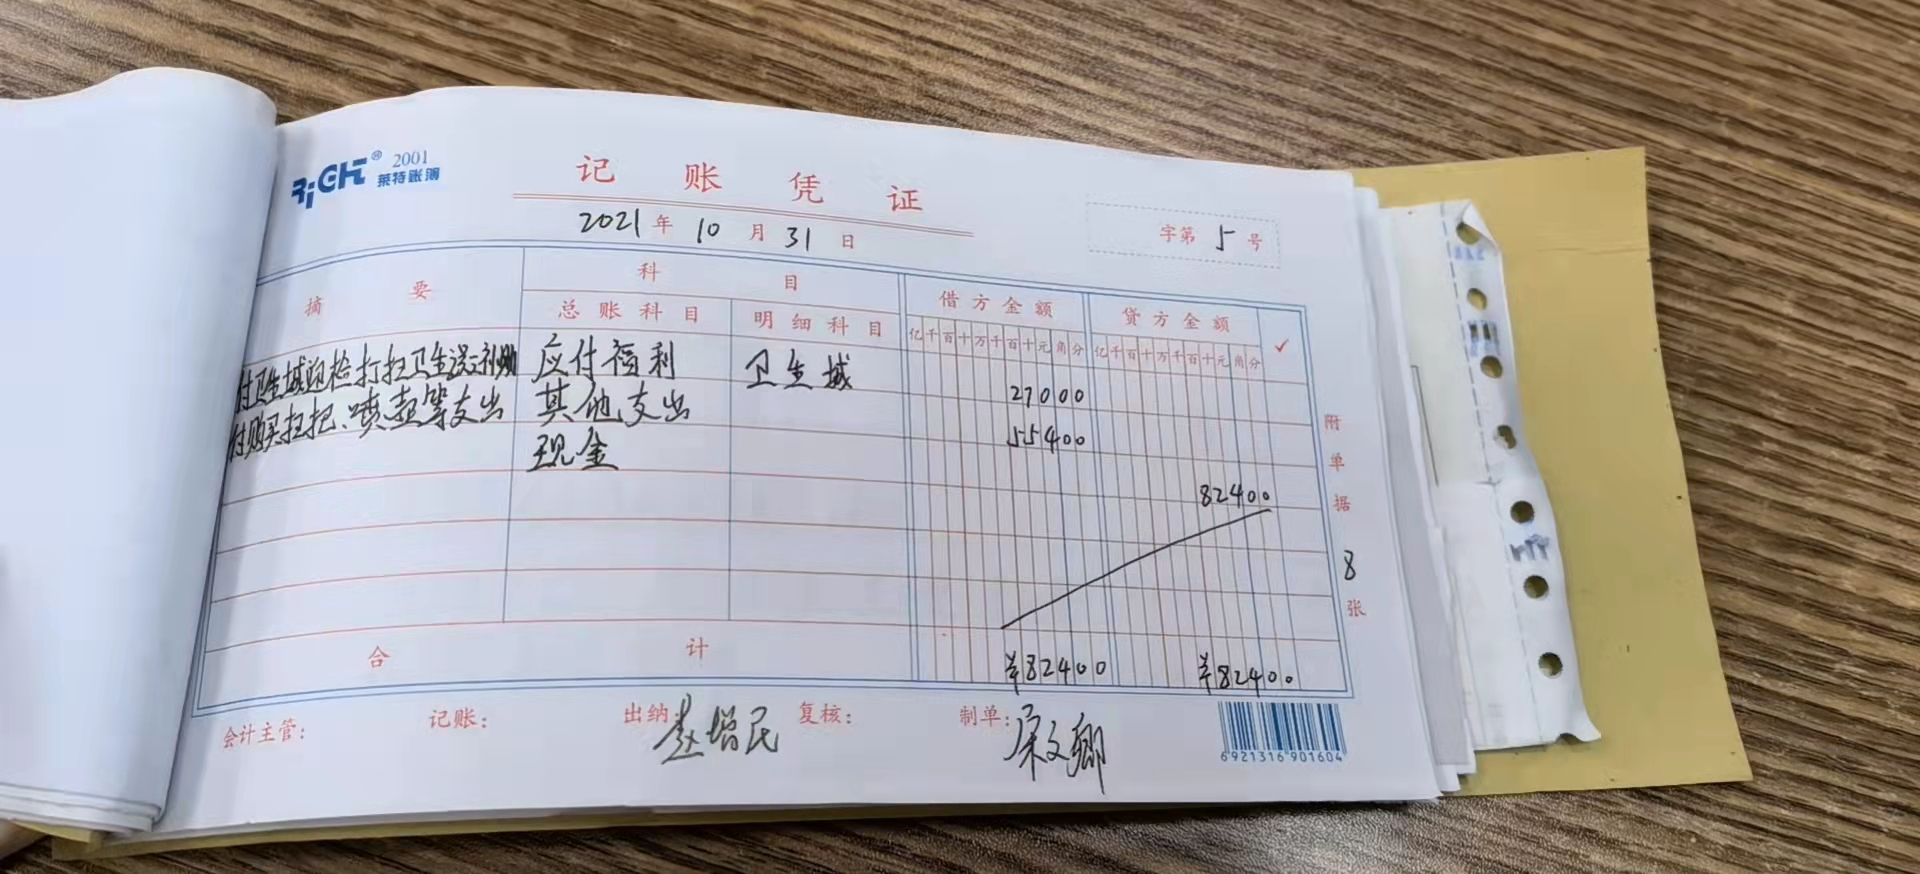 RiGHT® 2001
莱特账簿
记账凭证
2021年10月31日
字第5号
摘要
科目
借方金额
贷方金额
✓
总账科目
明细科目
亿千百十万千百十元角分
亿千百十万千百十元角分
付卫生城迎检打扫卫生误补助
应付福利
卫生城
27000
付购买扫把、喷款等支出
其他支出
55400
现金
82400
附单据8张
合计
¥82400
¥82400
会计主管:
记账:
出纳
赵增民
复核:
制单:
6921316901604